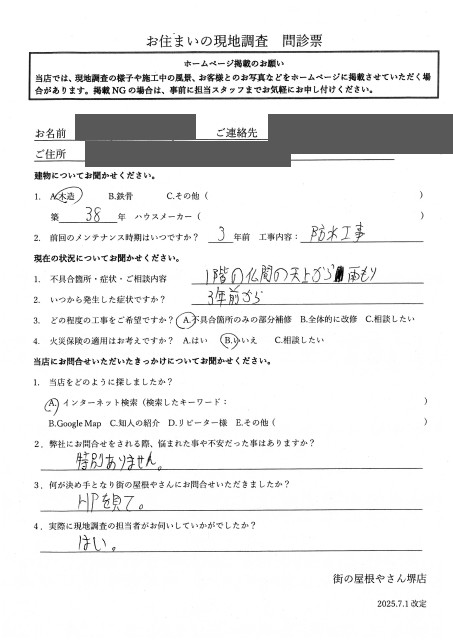 お住まいの現地調査 問診票
ホームページ掲載のお願い
当店では、現地調査の様子や施工中の風景、お客様とのお写真などをホームページに掲載させていただく場
合があります。掲載 NG の場合は、事前に担当スタッフまでお気軽にお申し付けください。
お名前 ご連絡先
ご住所
建物についてお聞かせください。
1. A.木造 B.鉄骨 C.その他( )
築 38 年 ハウスメーカー( )
2. 前回のメンテナンス時期はいつですか? 3 年前 工事内容: 防水工事
現在の状況についてお聞かせください。
1. 不具合箇所・症状・ご相談内容 1階の仏間の天上から雨もり
2. いつから発生した症状ですか? 3年前から
3. どの程度の工事をご希望ですか? A.不具合箇所のみの部分補修 B.全体的に改修 C.相談したい
4. 火災保険の適用はお考えですか? A.はい B.いいえ C.相談したい
当店にお問合せいただいたきっかけについてお聞かせください。
1. 当店をどのように探しましたか?
A. インターネット検索(検索したキーワード: )
B.Google Map C.知人の紹介 D.リピーター様 E.その他( )
2. 弊社にお問合せをされる際、悩まれた事や不安だった事はありますか?
特別ありません。
3. 何が決め手となり街の屋根やさんにお問合せいただきましたか?
HPを見て。
4. 実際に現地調査の担当者がお伺いしていかがでしたか?
はい。
街の屋根やさん堺店
2025.7.1 改定